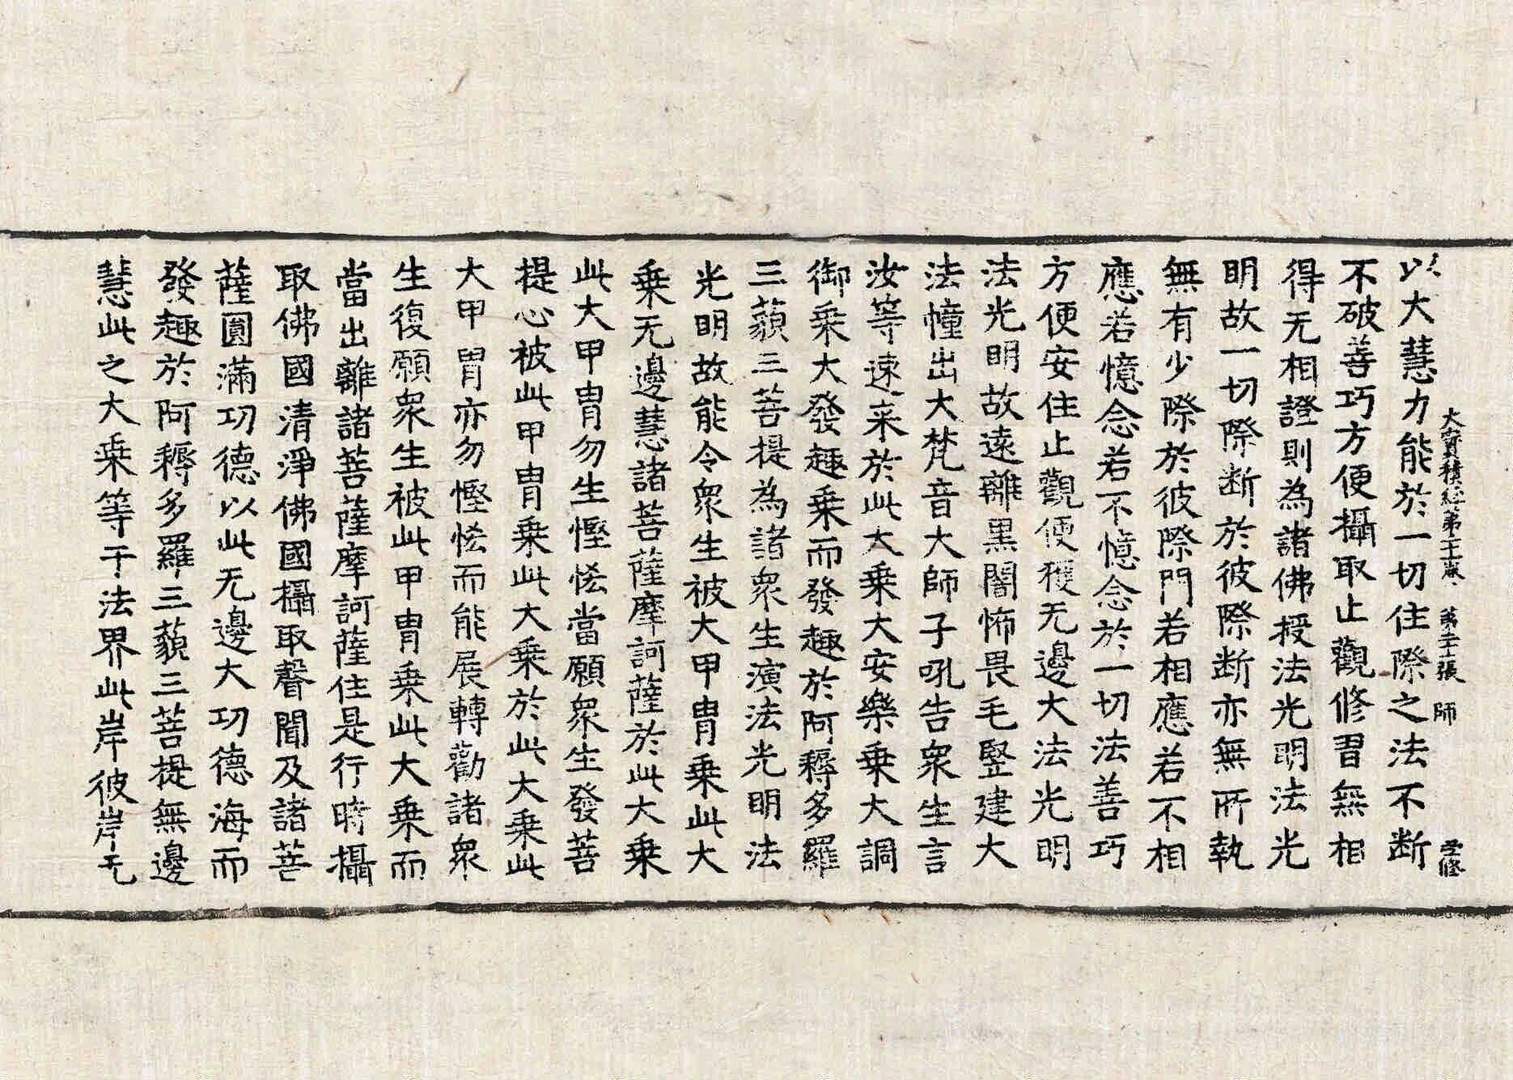 大寶積經第二十三卷 第二十張 師
以大慧力能於一切住際之法不断
不破善巧方便攝取止觀修習無相
得无相證則為諸佛授法光明法光
明故一切際断於彼際断亦無所執
無有少際於彼際門若相應若不相
應若憶念若不憶念於一切法善巧
方便安住止觀便獲无邊大法光明
法光明故遠離黑闇怖畏毛竪建大
法幢出大梵音大師子吼告衆生言
汝等速来於此大乗大安樂乗大調
御乗大發趣乗而發趣於阿耨多羅
三藐三菩提為諸衆生演法光明法
光明故能令衆生被大甲胄乗此大
乗无邊慧諸菩薩摩訶薩於此大乗
此大甲胄勿生慳恡當願衆生發菩
提心被此甲胄乗此大乗於此大乗此
大甲胄亦勿慳恡而能展轉勸諸衆
生復願衆生被此甲胄乗此大乗而
當出離諸菩薩摩訶薩住是行時攝
取佛國清淨佛國攝取聲聞及諸菩
薩圓滿功德以此无邊大功德海而
發趣於阿耨多羅三藐三菩提無邊
慧此之大乗等于法界此岸彼岸无